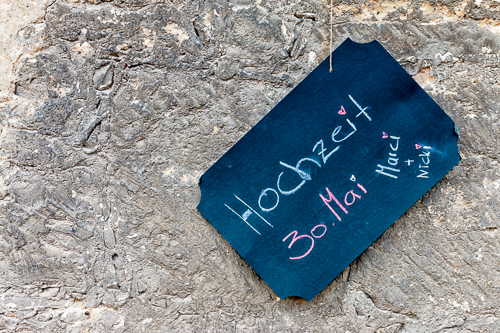 Hochzeit
30. Mai
Marci
+
Nicki